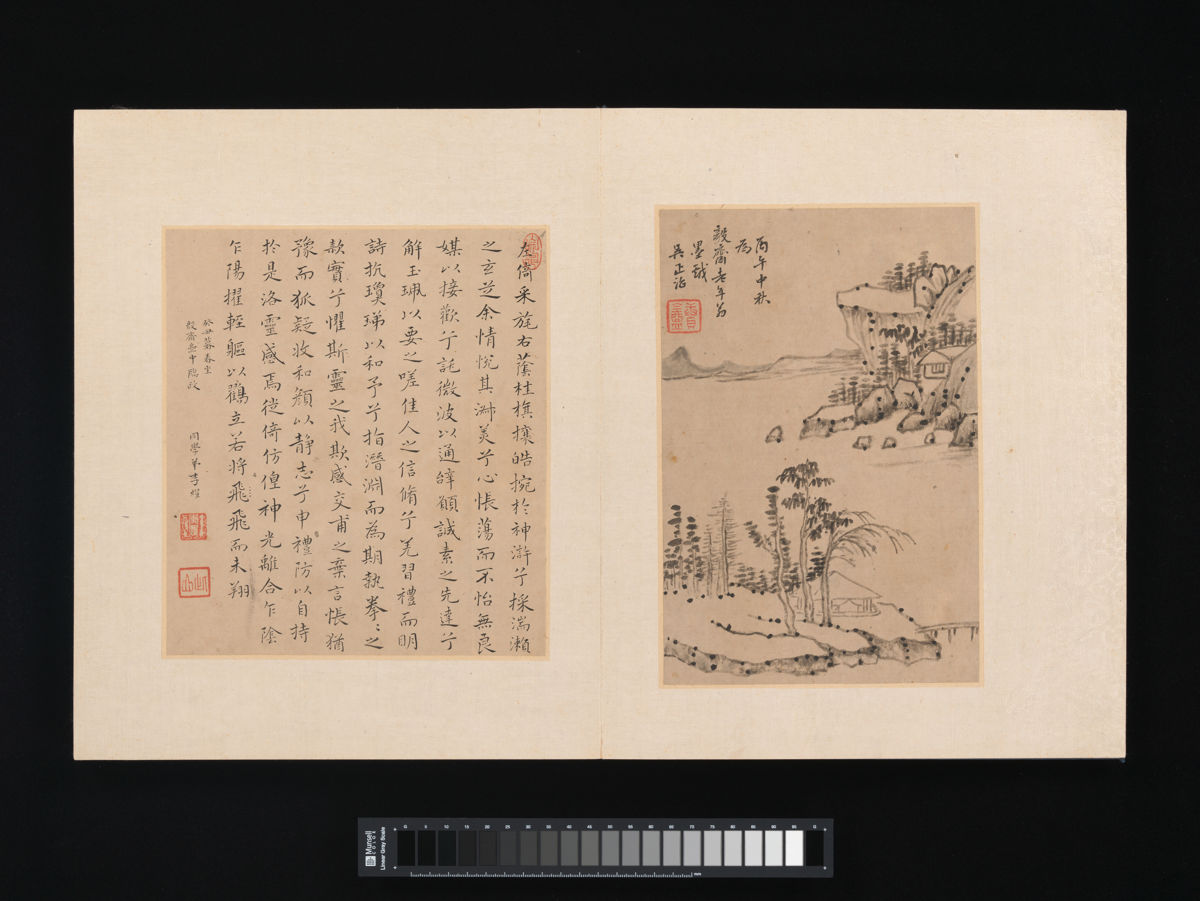 丙午中秋
為
毅齋老年翁
墨戲
吳正治
左倚采旄右蔭桂旗攘皓捥於神滸兮採湍瀨
之玄芝余情悅其淑美兮心悵蕩而不怡無良
媒以接歡兮託微波以通辭願誠素之先達兮
解玉珮以要之嗟佳人之信脩兮羌習禮而明
詩抗瓊珶以和予兮指潛淵而為期執拳〻之
款實兮懼斯靈之我欺感交甫之棄言悵猶
豫而狐疑收和顏以靜志兮申禮防以自持
於是洛靈感焉徙倚仿偟神光離合乍陰
乍陽擢輕軀以鶴立若將飛飛而未翔
癸丑暮春呈
毅齋
同學弟李
Munsell
COLOR
Linear Gray Scale
0 5 10 15 20 25 30 35 40 45 50 55 60 65 70 75 80 85 90 95 0
mm